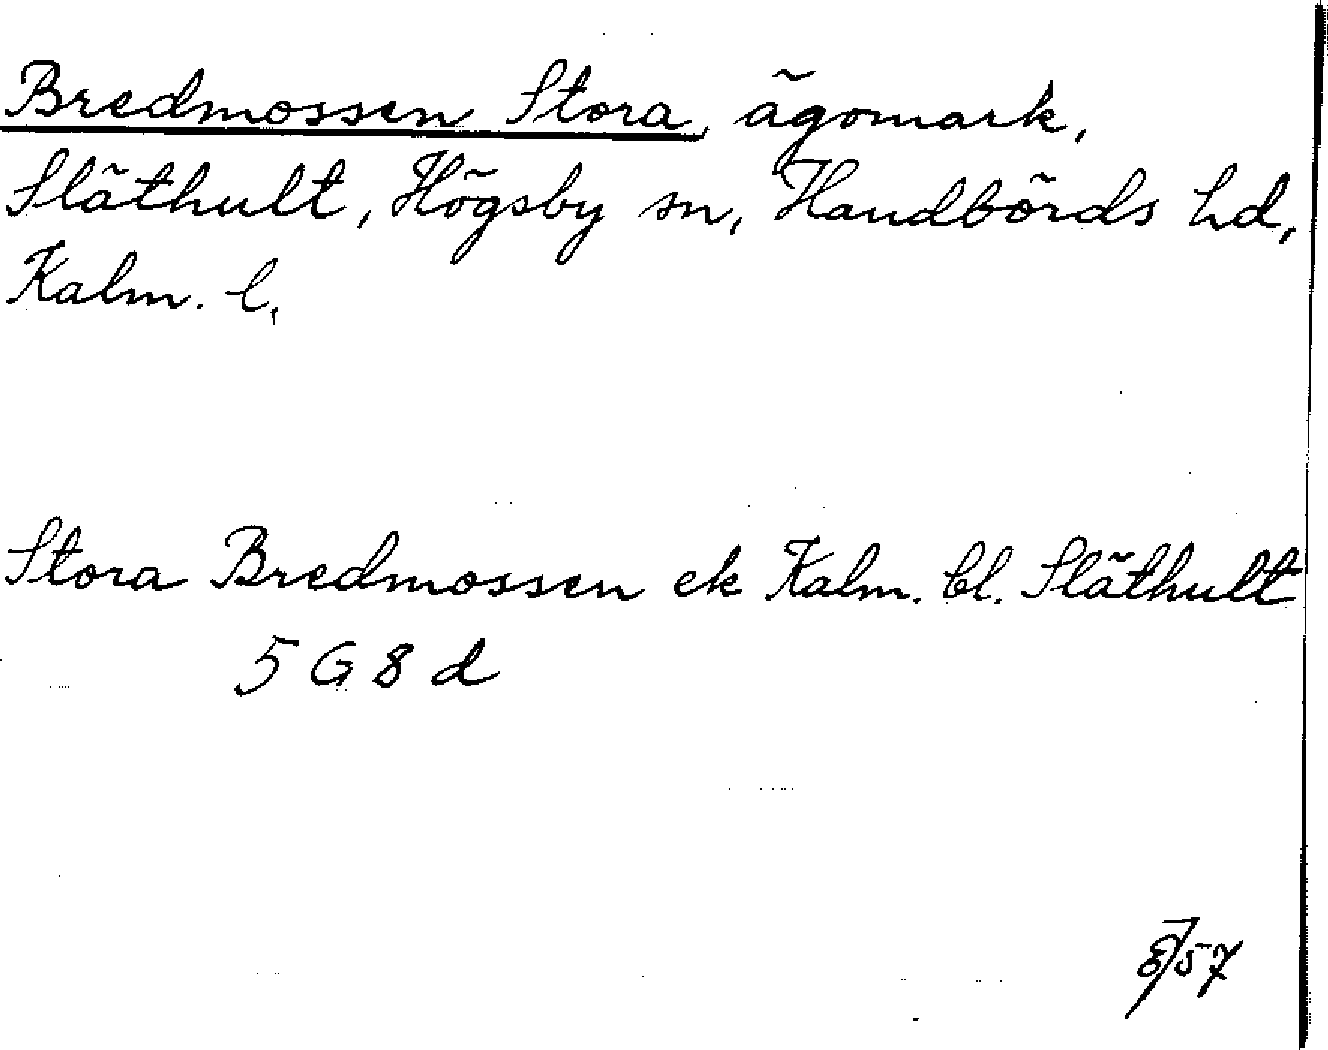 Bredmossen Stora, ägomark,
Släthult, Högsby sn, Handbörds hd,
Kalm. l.
Stora Bredmossen ek Kalm. bl. Släthult
5 G 8 d
57